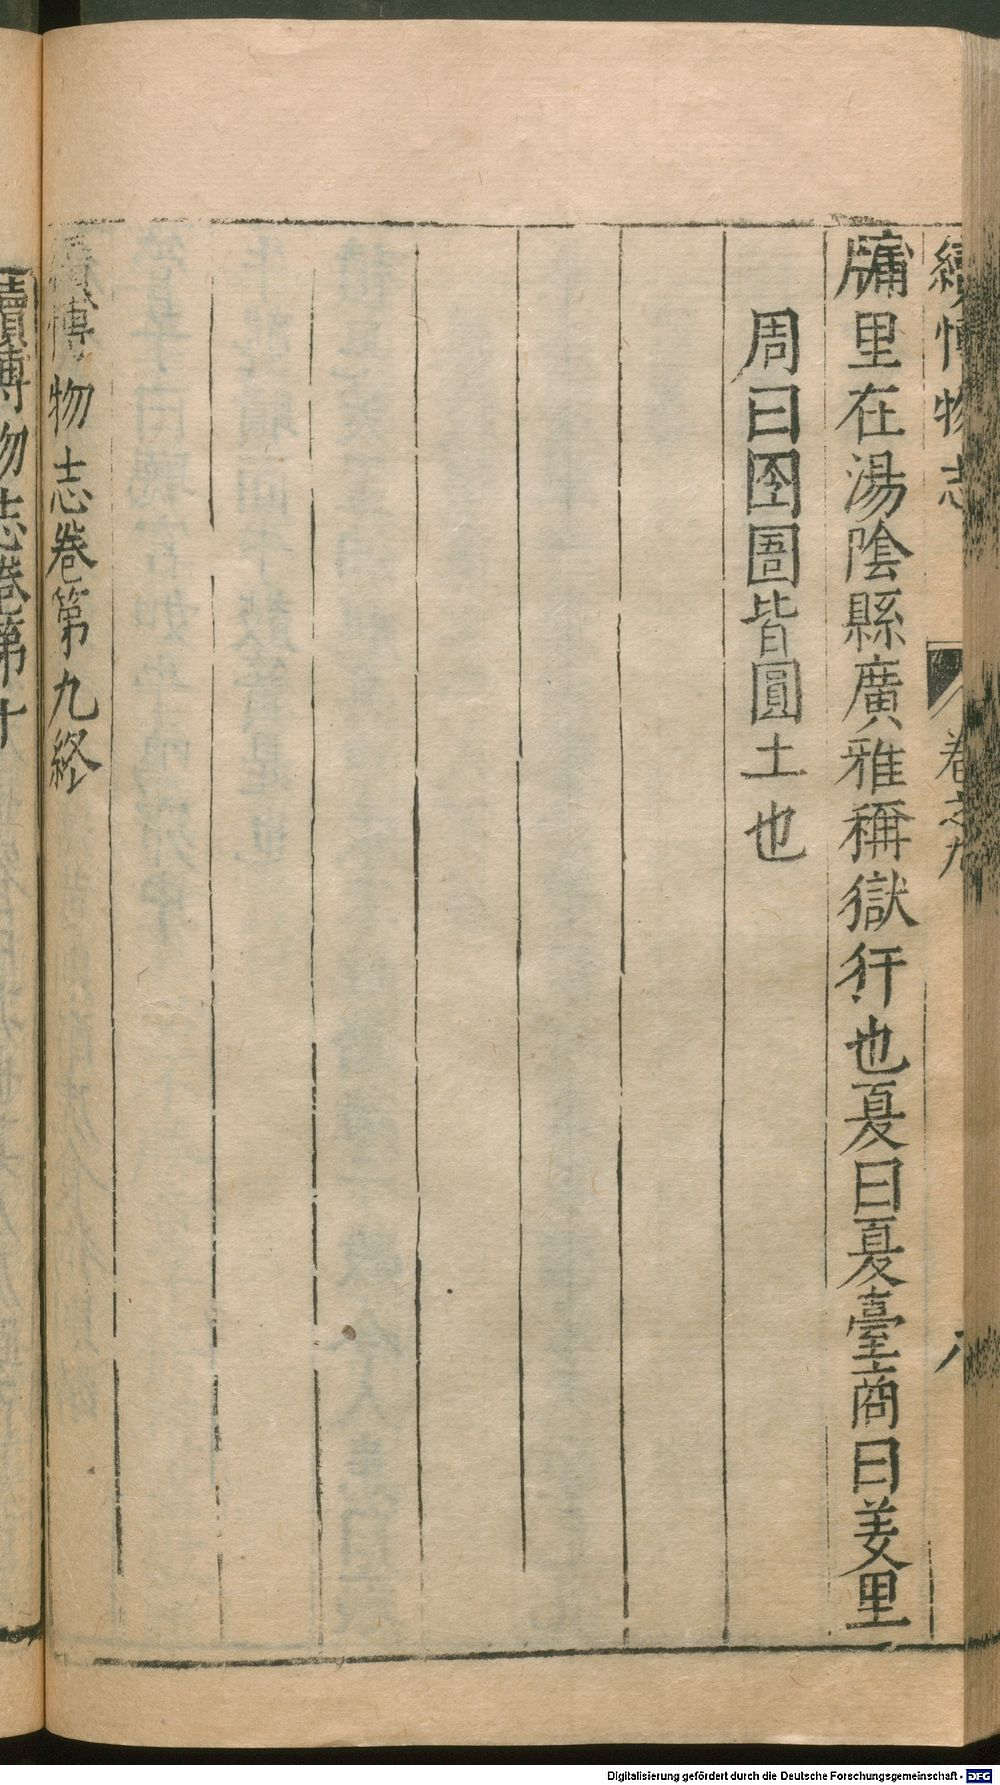 續博物志 卷之九
牖里在湯陰縣廣雅稱獄犴也夏曰夏臺商曰羑里
周曰囹圄皆圓土也
續博物志卷第九終
續博物志卷第十
Digitalisierung gefördert durch die Deutsche Forschungsgemeinschaft - DFG